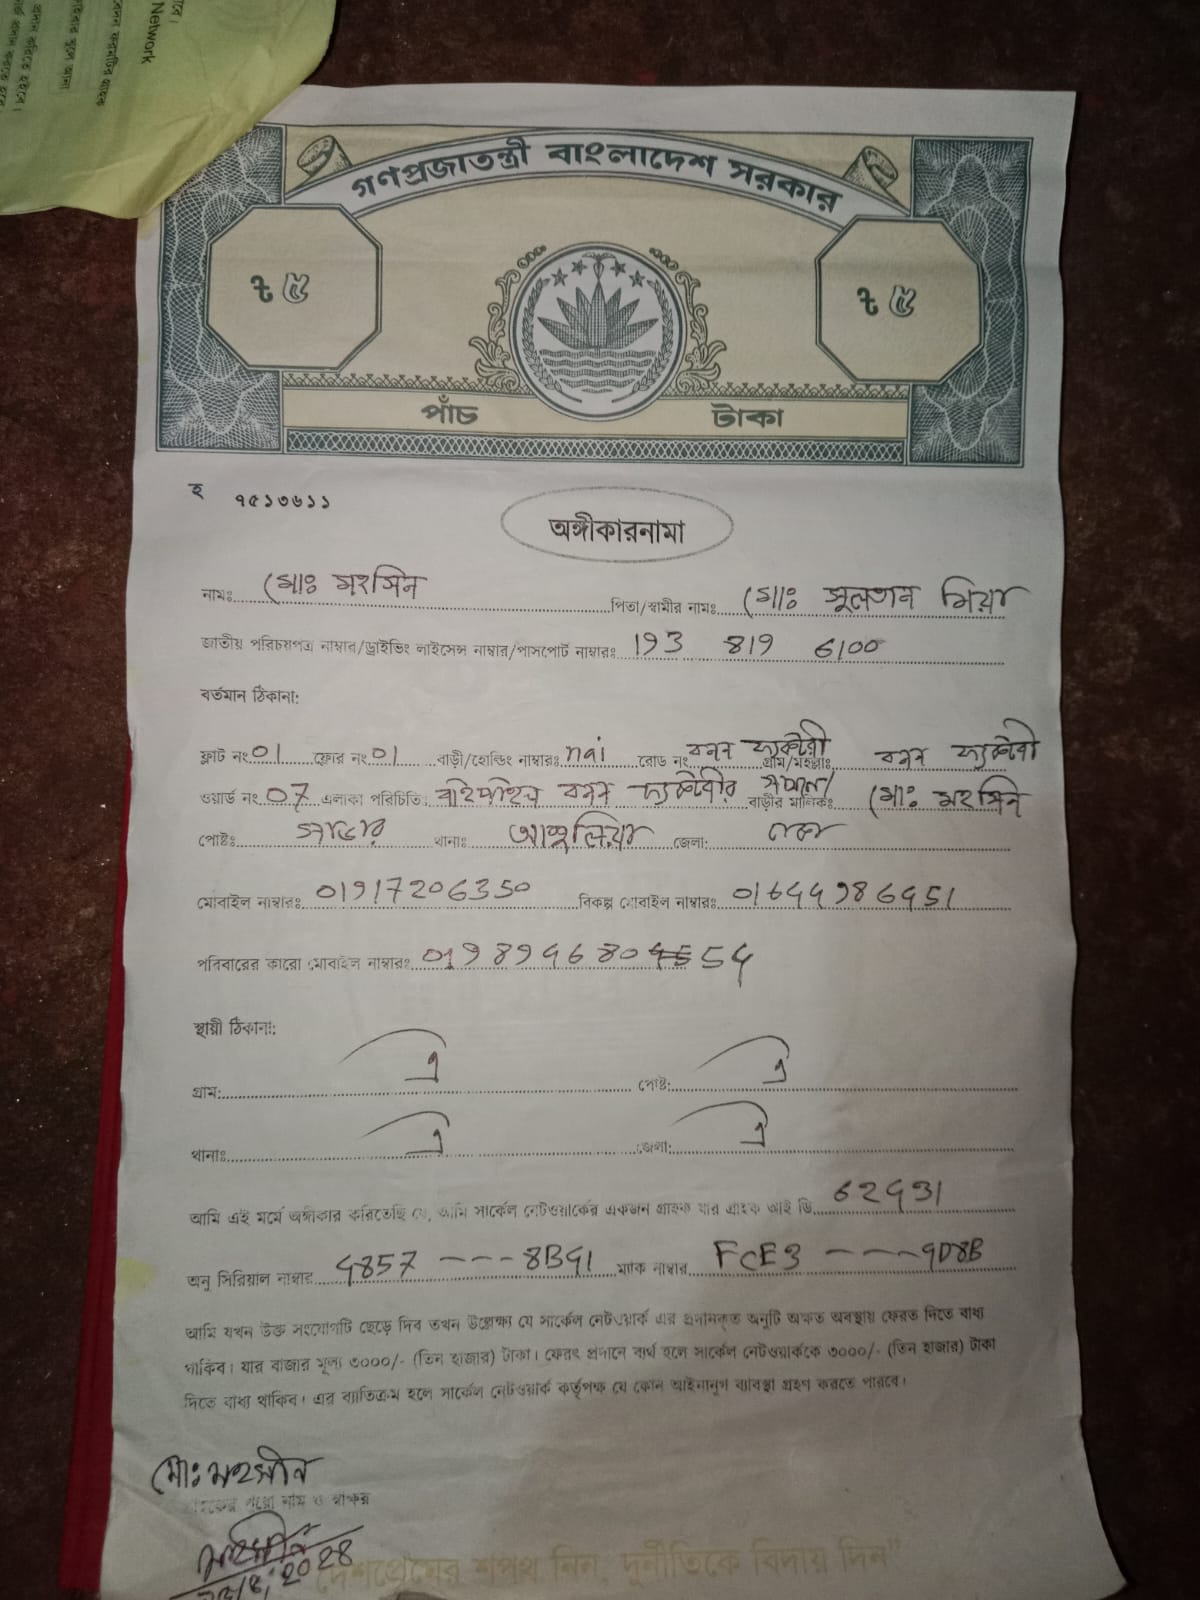 Network
গণপ্রজাতন্ত্রী বাংলাদেশ সরকার
৳ ৫ ৳ ৫
পাঁচ টাকা
হ ৭৫১৩৬১১
অঙ্গীকারনামা
নামঃ মোঃ মহসিন পিতা/স্বামীর নামঃ মোঃ সুলতান মিয়া
জাতীয় পরিচয়পত্র নাম্বার/ড্রাইভিং লাইসেন্স নাম্বার/পাসপোর্ট নাম্বারঃ 193 819 6100
বর্তমান ঠিকানা:
ফ্লাট নং 01 ফ্লোর নং 01 বাড়ী/হোল্ডিং নাম্বারঃ nai রোড নং বলন ফ্যাক্টরী গ্রাম/মহল্লাঃ বলন ফ্যাক্টরী
ওয়ার্ড নং 07 এলাকা পরিচিতি: বাইপাইল বলন ফ্যাক্টরীর বাড়ীর মালিকঃ মোঃ মহসিন
পোষ্টঃ সাভার থানাঃ আশুলিয়া জেলা: ঢাকা
মোবাইল নাম্বারঃ 01917206350 বিকল্প মোবাইল নাম্বারঃ
পরিবারের কারো মোবাইল নাম্বারঃ
স্থায়ী ঠিকানা:
গ্রাম: ঐ পোষ্ট: ঐ
থানাঃ ঐ জেলা: ঐ
আমি এই মর্মে অঙ্গীকার করিতেছি যে, আমি সার্কেল নেটওয়ার্কের একজন গ্রাহক যার গ্রাহক আই ডি
অনু সিরিয়াল নাম্বার 4857 --- 8B41 ম্যাক নাম্বার FCE3 --- 9D8B
আমি যখন উক্ত সংযোগটি ছেড়ে দিব তখন উল্লেক্ষ্য যে সার্কেল নেটওয়ার্ক এর প্রদানকৃত অনুটি অক্ষত অবস্থায় ফেরত দিতে বাধ্য
থাকিব। যার বাজার মূল্য ৩০০০/- (তিন হাজার) টাকা। ফেরৎ প্রদানে ব্যর্থ হলে সার্কেল নেটওয়ার্ককে ৩০০০/- (তিন হাজার) টাকা
দিতে বাধ্য থাকিব। এর ব্যাতিক্রম হলে সার্কেল নেটওয়ার্ক কর্তৃপক্ষ যে কোন আইনানুগ ব্যাবস্থা গ্রহণ করতে পারবে।
মোঃ মহসীন
গ্রাহকের পুরো নাম ও স্বাক্ষর
মহসীন
দেশপ্রেমের শপথ নিন, দুর্নীতিকে বিদায় দিন"